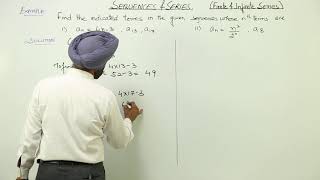 Example
SEQUENCES & SERIES
(Finite & Infinite Series)
Find the indicated terms in the given sequences whose nth terms are
i) aₙ = 4n-3 , a₁₃ , a₁₇
ii) aₙ = n²/2ⁿ , a₈
SOLUTION
4×13-3
= 52-3 = 49
4×17-3